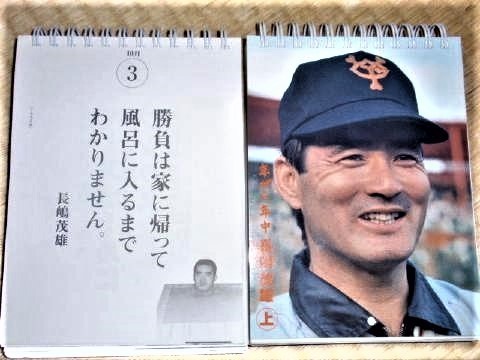 10月
3
勝負は家に帰って
風呂に入るまで
わかりません。
長嶋茂雄
年中
上